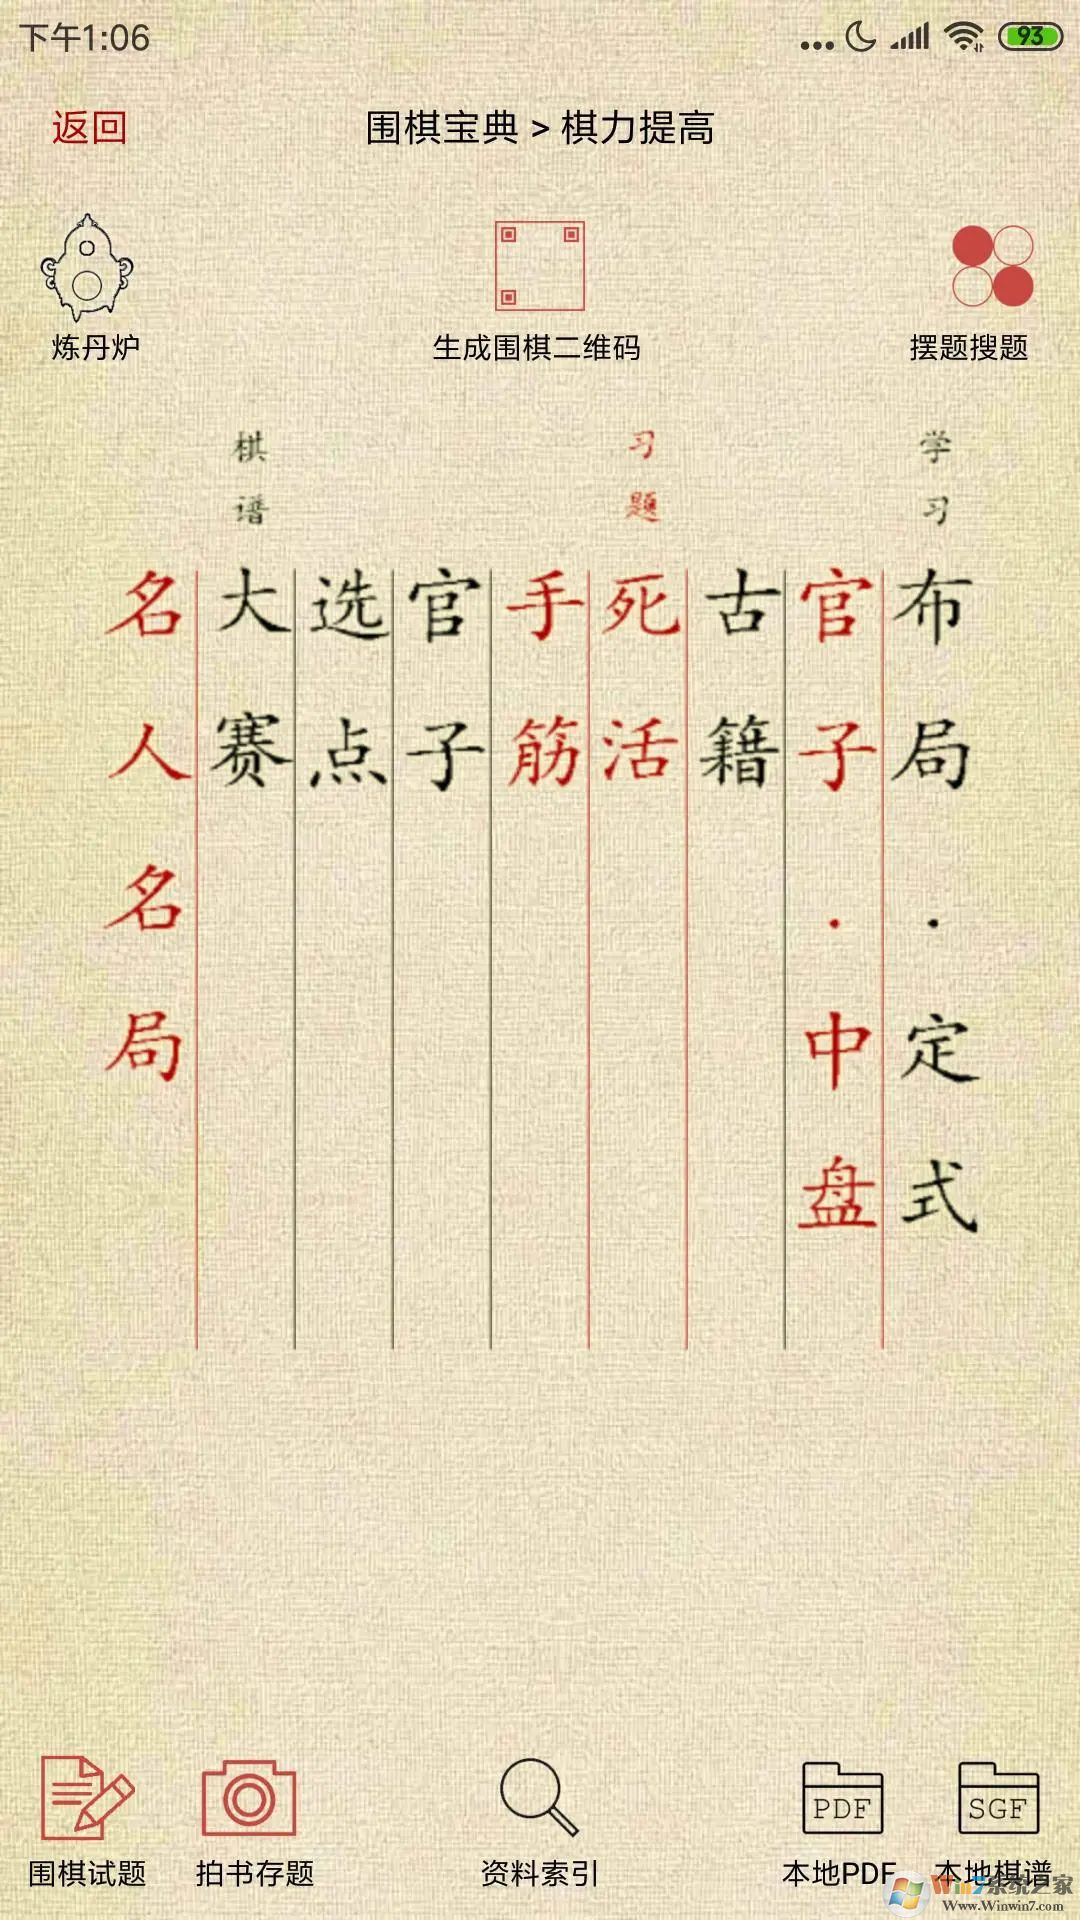 下午1:06
93
返回
围棋宝典 > 棋力提高
炼丹炉
生成围棋二维码
摆题搜题
学习
习题
棋谱
布局·定式
官子·中盘
古籍
死活
手筋
官子
选点
大赛
名人名局
围棋试题
拍书存题
资料索引
PDF
本地PDF
SGF
本地棋谱
Win7系统之家
Www.Winwin7.com